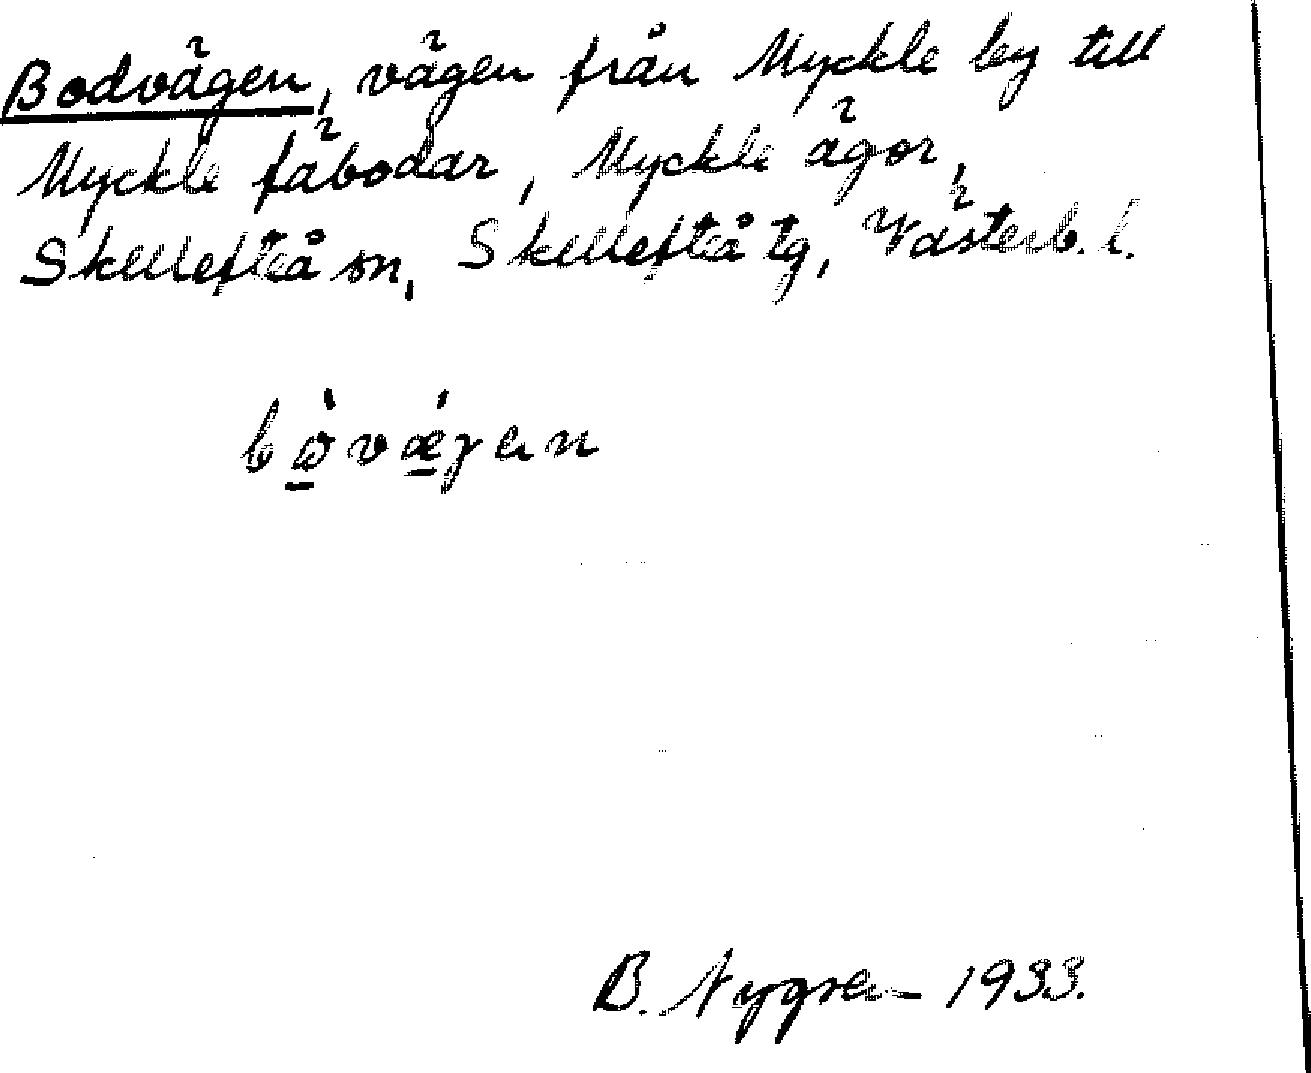 Bodvägen, vägen från Myckle by till
Myckle fäbodar, Myckle ägor,
Skellefteå sn, Skellefteå tg, Västerb. l.
B. Nygren 1933.